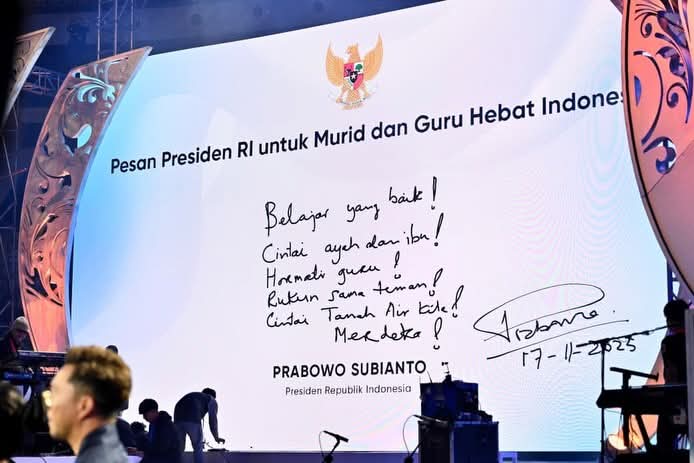 Pesan Presiden RI untuk Murid dan Guru Hebat Indones
Belajar yang baik!
Cintai ayah dan ibu!
Hormati guru!
Rukun sama teman!
Cintai Tanah Air kita!
Merdeka!
Prabowo
17-11-2025
PRABOWO SUBIANTO
Presiden Republik Indonesia